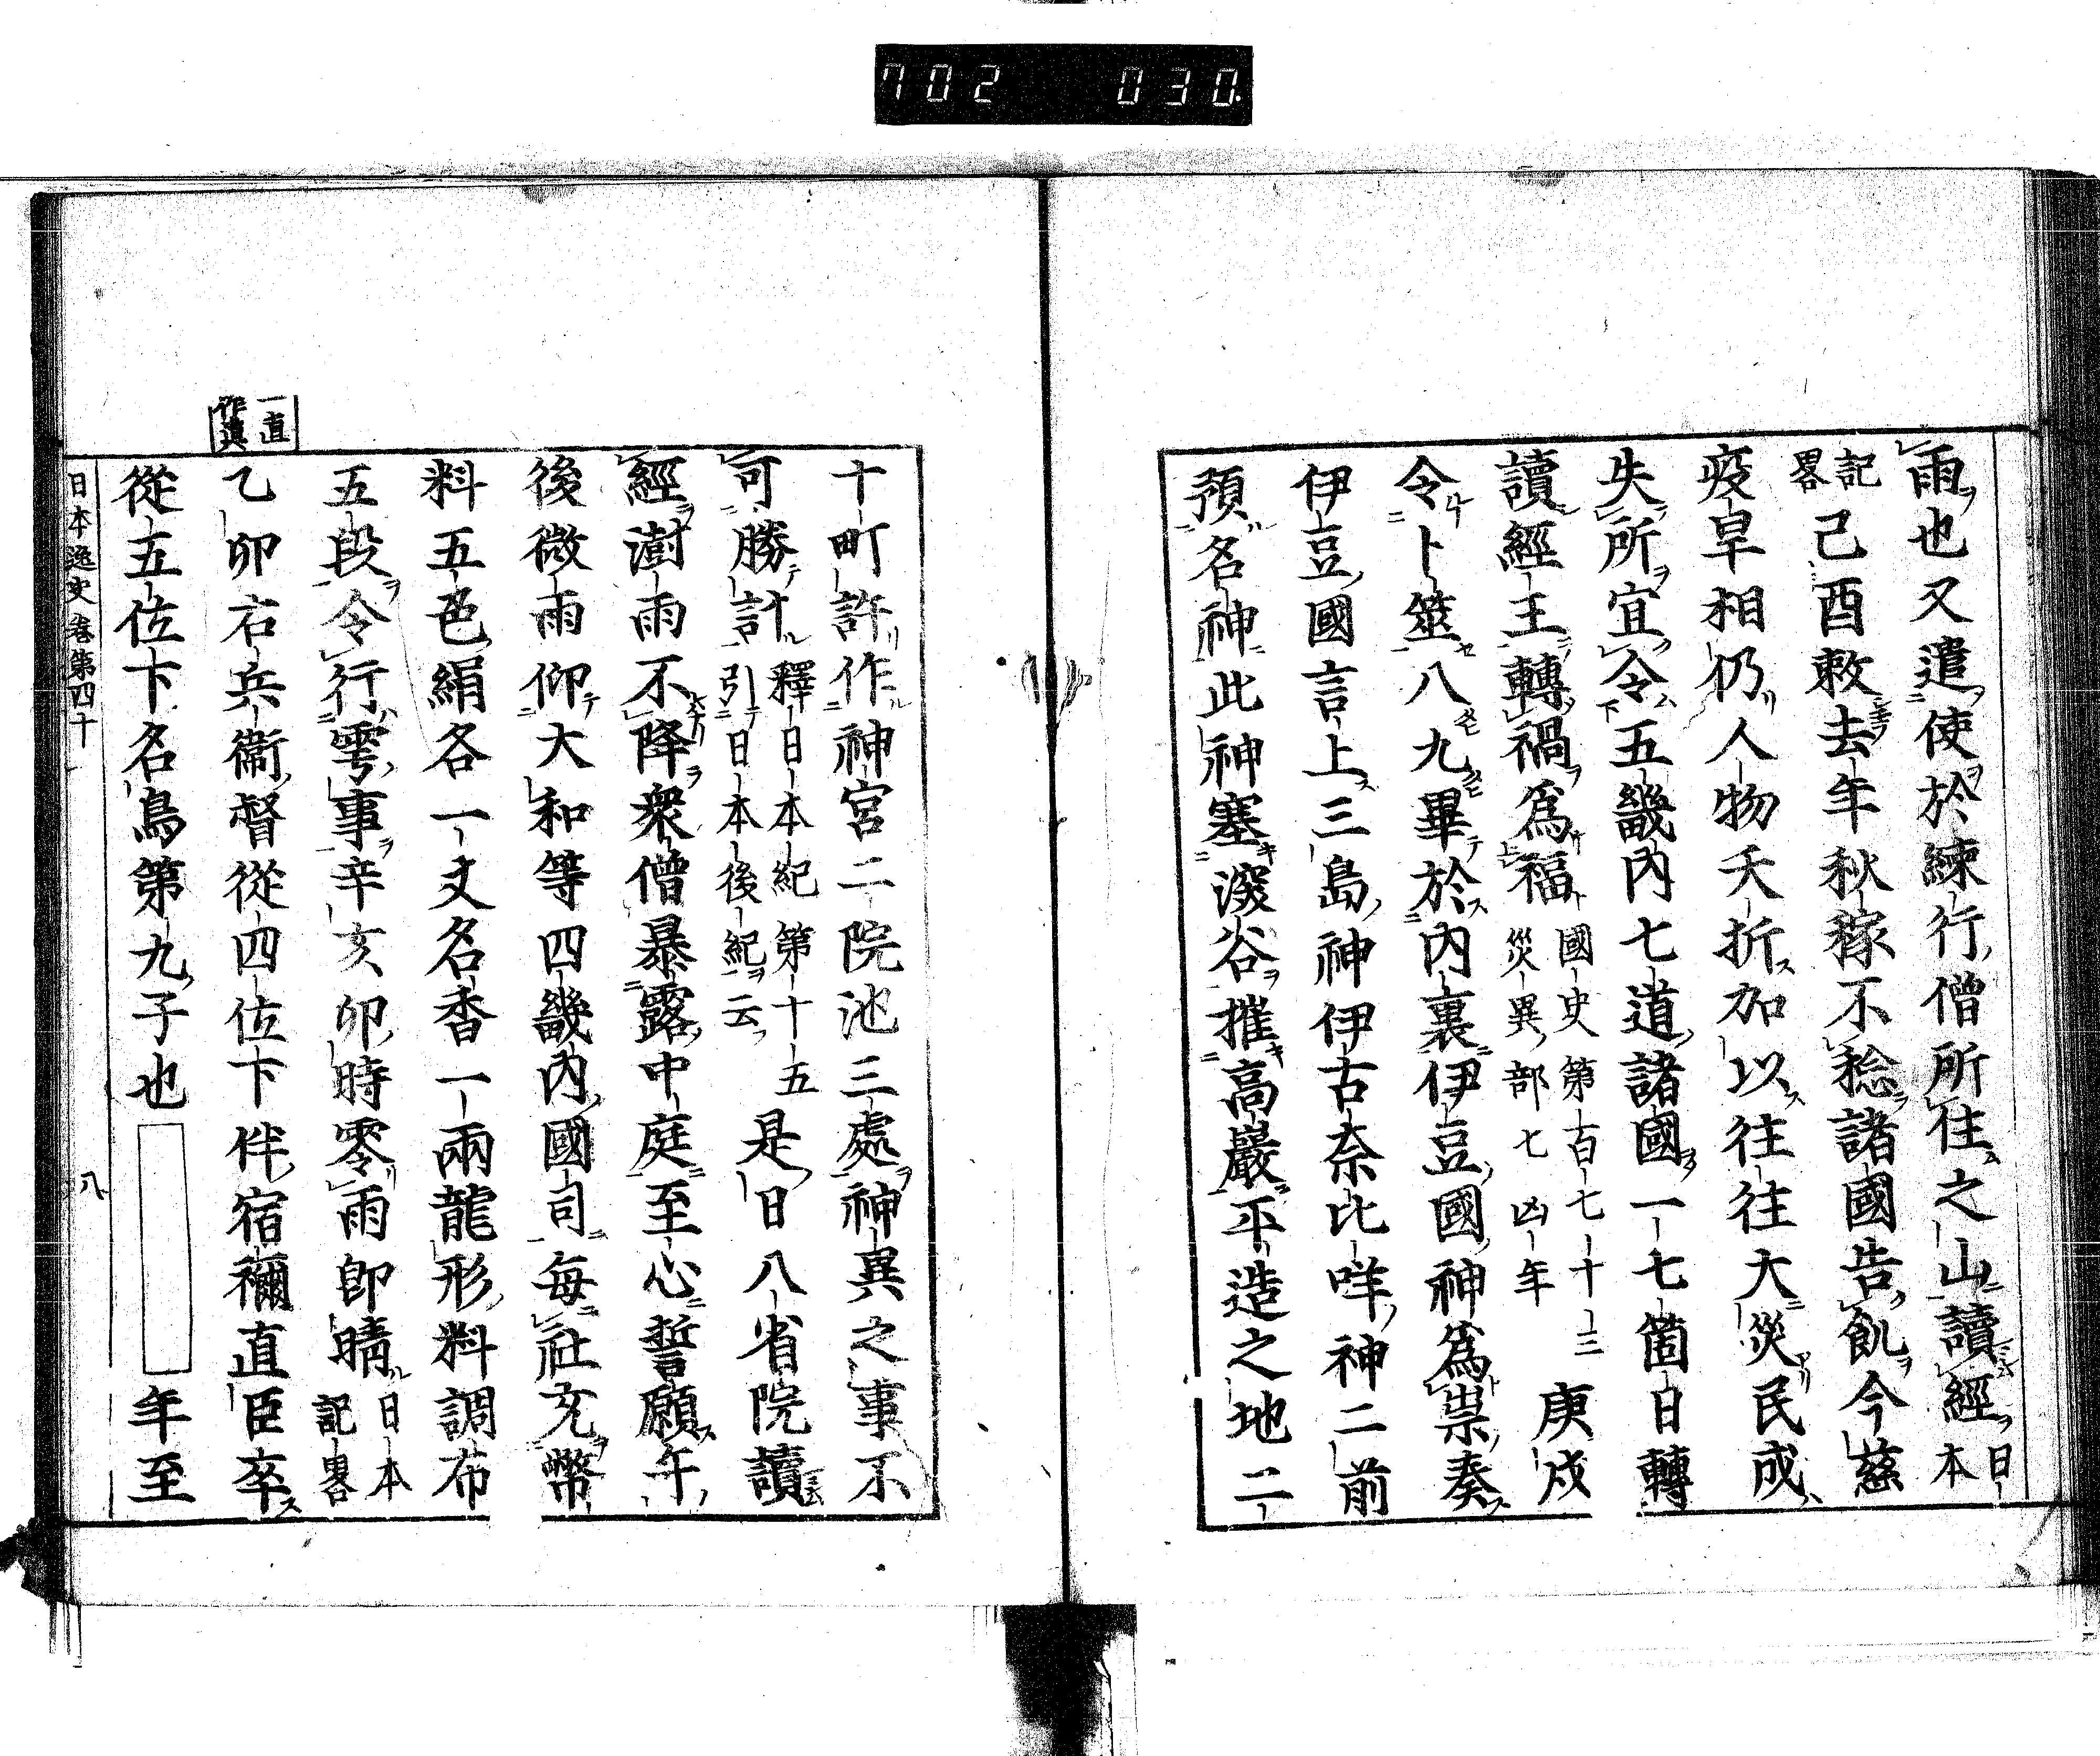 702 030
雨也又遣使於練行僧所住之山讀經日本
記畧己酉敕去年秋稼不稔諸國告飢今茲
疫旱相仍人物夭折加以往往大災民成
失所宜令五畿內七道諸國一七箇日轉
讀經王轉禍爲福國史第百七十三災異部七凶年庚戌
令卜筮八九畢於內裏伊豆國神爲祟奏
伊豆國言上三島神伊古奈比咩神二前
預名神此神塞深谷摧高巖平造之地二
十町許作神宮二院池三處神異之事不
可勝計釋日本紀第十五引日本後紀云是日八省院讀
經澍雨不降衆僧暴露中庭至心誓願午
後微雨仰大和等四畿內國司每社充幣
料五色絹各一丈名香一兩龍形料調布
五段令行雩事辛亥卯時零雨即晴日本記畧
一直作眞
乙卯右兵衞督從四位下伴宿禰直臣卒
從五位下名鳥第九子也年至
日本逸史卷第四十
八